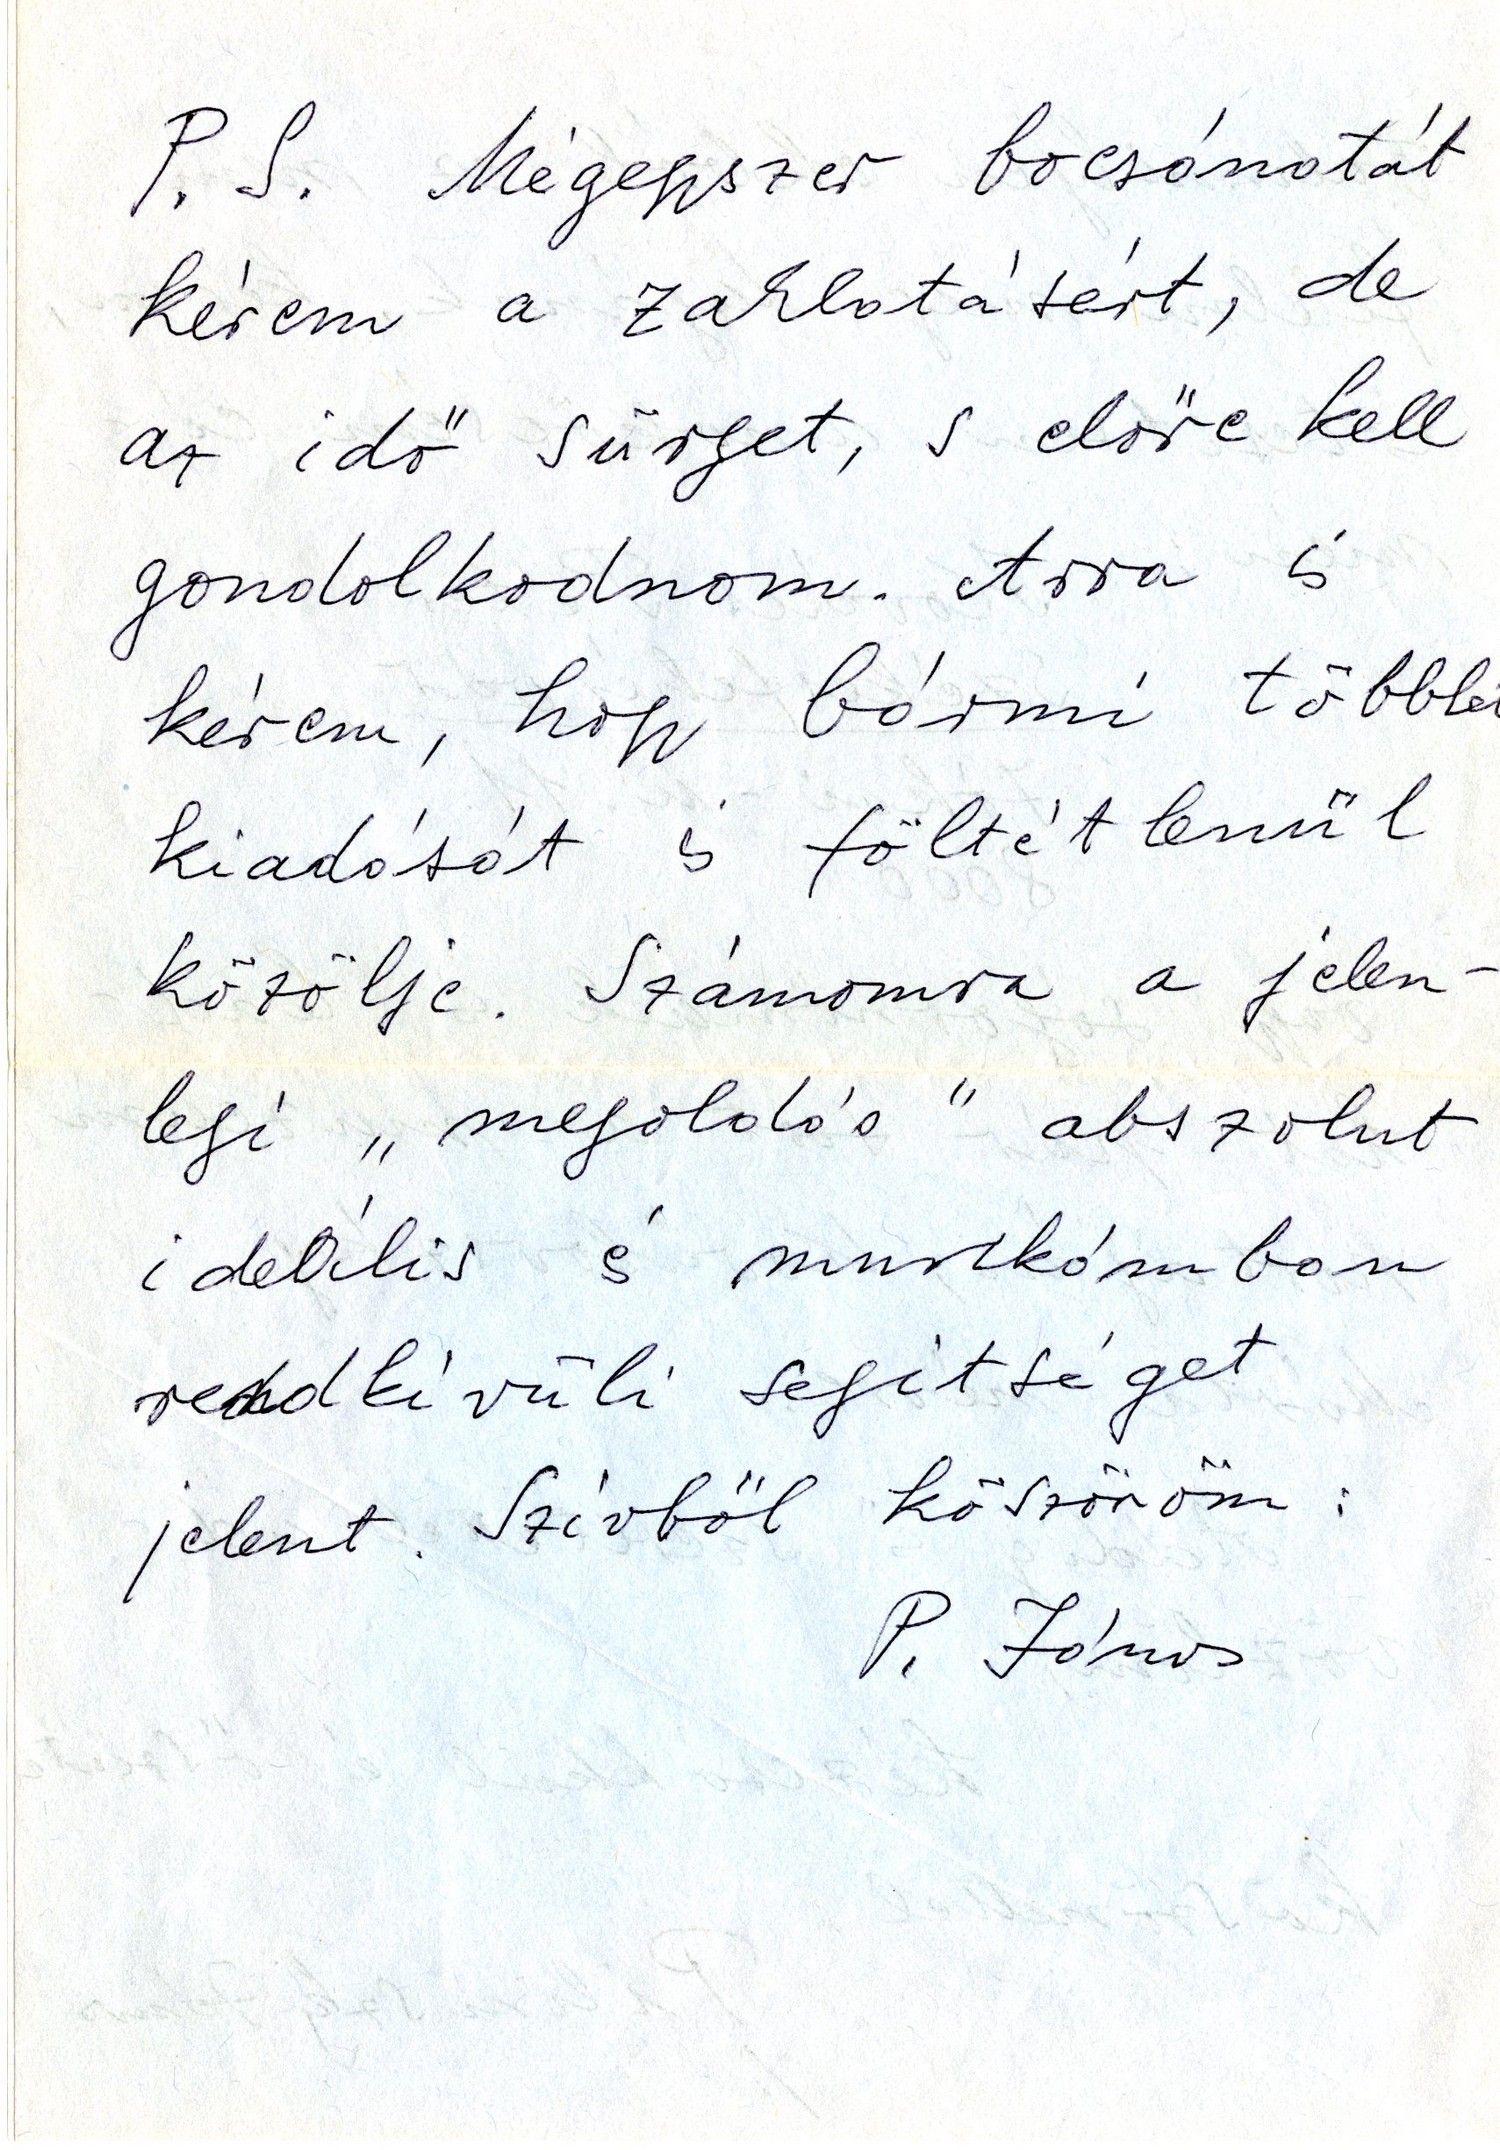 P. S. Mégegyszer bocsánatát
kérem a zaklatásért, de
az idő sürget, s előre kell
gondolkodnom. Arra is
kérem, hogy bármi többlet
kiadását is föltétlenül
közölje. Számomra a jelen-
legi „megoldás" abszolut
ideális és munkámban
rendkívüli segítséget
jelent. Szívből köszönöm:
P. János